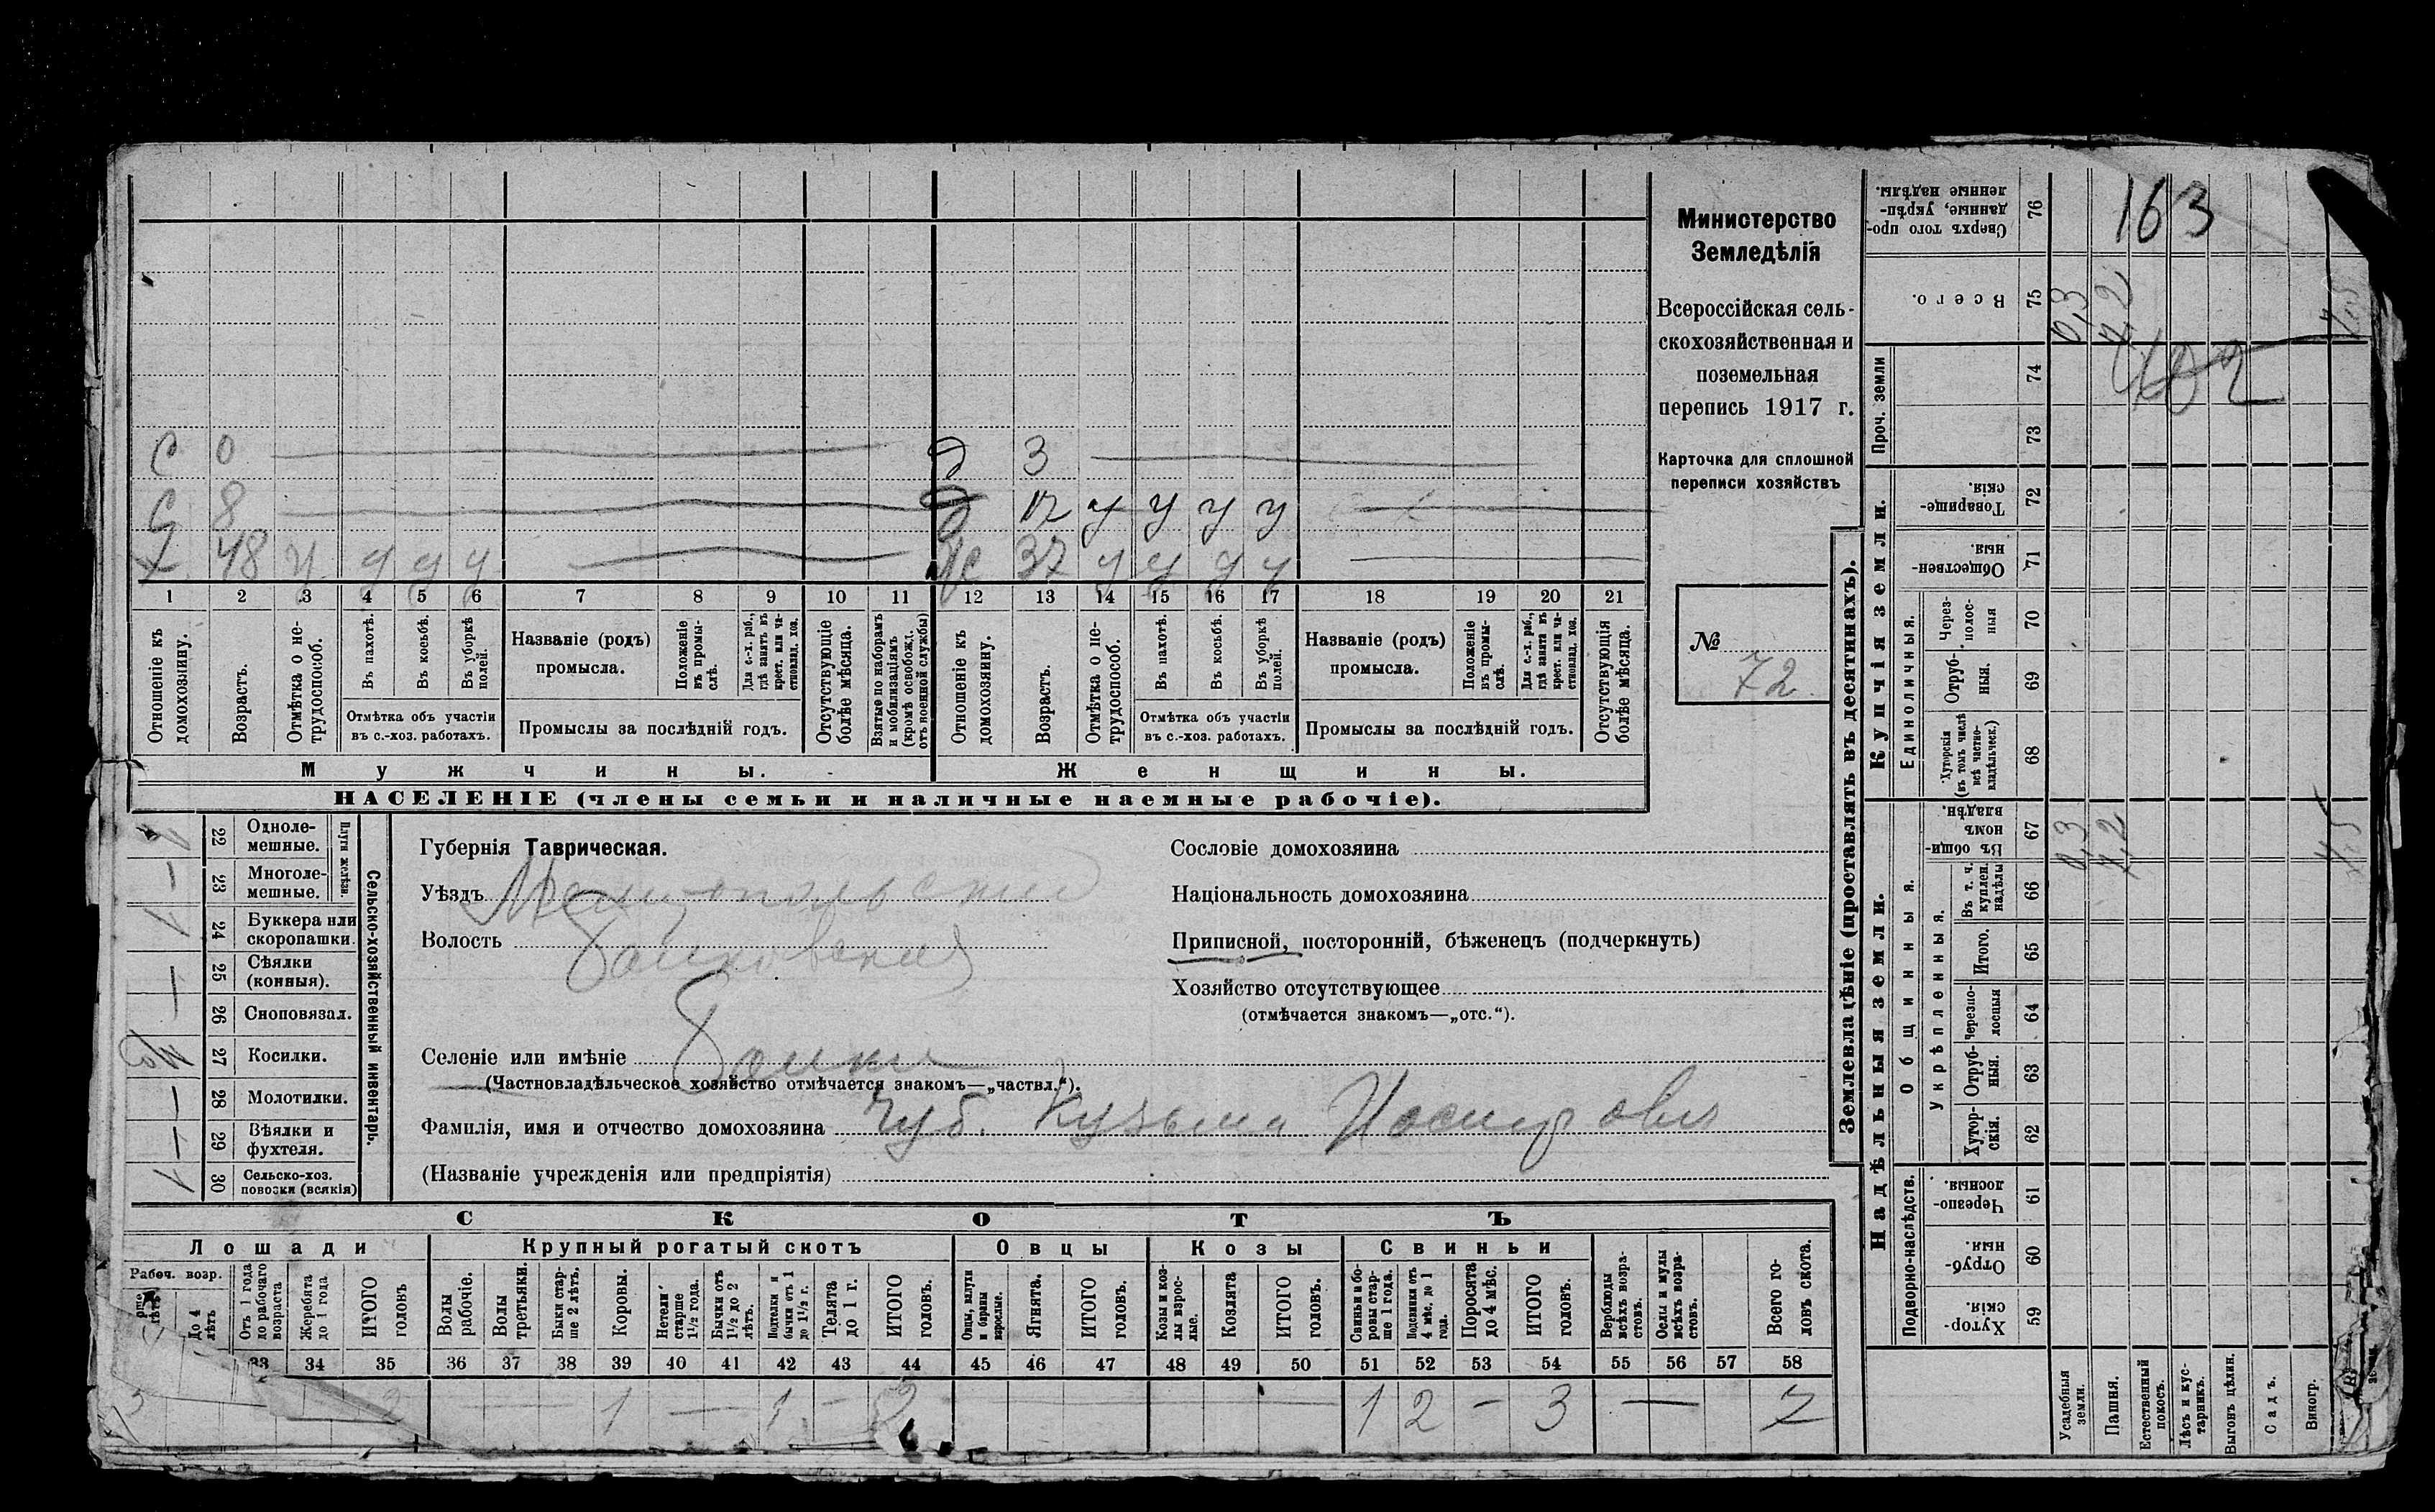 163
Министерство
Земледѣлія
Всероссійская сель-
скохозяйственная и
поземельная
перепись 1917 г.
Карточка для сплошной
переписи хозяйствъ
№
72
С 0 — 3 —
С 8 — 12 у у у у —
х 48 у у у у — 37 у у у у —
1 2 3 4 5 6 7 8 9 10 11 12 13 14 15 16 17 18 19 20 21
Отношеніе къ домохозяину.
Возрастъ.
Отмѣтка о не-трудоспособ.
Въ пахотѣ.
Въ косьбѣ.
Въ уборкѣ полей.
Отмѣтка объ участіи
въ с.-хоз. работахъ.
Названіе (родъ)
промысла.
Положеніе въ промы-слѣ.
Для с.-х. раб., гдѣ занятъ въ крест. или ча-стновлад. хоз.
Промыслы за послѣдній годъ.
Отсутствующіе болѣе мѣсяца.
Взятые по наборамъ и мобилизаціямъ (кромѣ освобожд. отъ военной службы)
Отношеніе къ домохозяину.
Возрастъ.
Отмѣтка о не-трудоспособ.
Въ пахотѣ.
Въ косьбѣ.
Въ уборкѣ полей.
Отмѣтка объ участіи
въ с.-хоз. работахъ.
Названіе (родъ)
промысла.
Положеніе въ промы-слѣ.
Для с.-х. раб., гдѣ занята въ крест. или ча-стновлад. хоз.
Промыслы за послѣдній годъ.
Отсутствующія болѣе мѣсяца.
Мужчины. Женщины.
НАСЕЛЕНІЕ (члены семьи и наличные наемные рабочіе).
Сельско-хозяйственный инвентарь.
Плуги желѣзн.
22 Одноле-мешные.
23 Многоле-мешные.
24 Буккера или скоропашки.
25 Сѣялки (конныя).
26 Сноповязал.
27 Косилки.
28 Молотилки.
29 Вѣялки и фухтеля.
30 Сельско-хоз. повозки (всякія)
Губернія Таврическая.
Уѣздъ Мелитопольскій
Волость
Селеніе или имѣніе
(Частновладѣльческое хозяйство отмѣчается знакомъ—„частвл.“).
Фамилія, имя и отчество домохозяина Чуб. Кузьма Иосифович
(Названіе учрежденія или предпріятія)
Сословіе домохозяина
Національность домохозяина
Приписной, посторонній, бѣженецъ (подчеркнуть)
Хозяйство отсутствующее
(отмѣчается знакомъ—„отс.“).
СКОТЪ
Лошади Крупный рогатый скотъ Овцы Козы Свиньи
Рабоч. возр.
До 4 лѣтъ
Отъ 1 года до рабочаго возраста
Жеребята до 1 года
ИТОГО головъ
Волы рабочіе.
Волы третьяки.
Быки стар-ше 2 лѣтъ.
Коровы.
Нетели старше 1½ года.
Бычки отъ 1½ до 2 лѣтъ.
Подтелки и бычки отъ 1 до 1½ г.
Телята до 1 г.
ИТОГО головъ.
Овцы, валухи и бараны взрослые.
Ягнята.
ИТОГО головъ.
Козы и коз-лы взрос-лые.
Козлята
ИТОГО головъ.
Свиньи и бо-ровы стар-ше 1 года.
Подсвинки отъ 4 мѣс. до 1 года.
Поросята до 4 мѣс.
ИТОГО головъ.
Верблюды всѣхъ возра-стовъ.
Ослы и мулы всѣхъ возра-стовъ.
Всего го-ловъ скота.
33 34 35 36 37 38 39 40 41 42 43 44 45 46 47 48 49 50 51 52 53 54 55 56 57 58
2 — 1 — 1 — 2 — 1 2 — 3 — 7
Землевладѣніе (проставлять въ десятинахъ).
Надѣльныя земли.
Купчія земли.
Проч. земли
Подворно-наслѣдств.
Общинныя.
Укрѣпленныя.
Единоличныя.
Сверхъ того про-данные, укрѣп-ленные надѣлы. 76
Всего. 75 0,3 7,2 7,5
74
73
Товарище-скія. 72
Обществен-ныя. 71
Через-полос-ныя 70
Отруб-ныя. 69
Хуторскія (въ томъ числѣ всѣ частно-владѣльческ.) 68
Въ общин-номъ владѣн. 67 0,3 7,2 7,5
Въ т. ч. куплен. надѣлы 66
Итого. 65
Черезпо-лосныя 64
Отруб-ныя. 63
Хутор-скія. 62
Черезпо-лосныя. 61
Отруб-ныя. 60
Хутор-скія. 59
Усадебныя земли.
Пашня.
Естественный покосъ.
Лѣсъ и кус-тарникъ.
Выгонъ цѣлин.
Садъ.
Виногр.